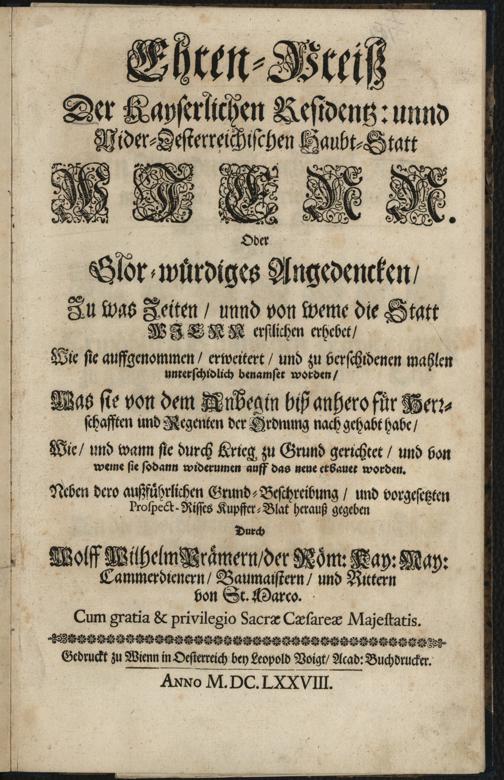 Ehren-Preiß
Der Kayserlichen Residentz: unnd
Nider-Oesterreichischen Haubt-Statt
WIENN.
Oder
Glor-würdiges Angedencken/
Zu was Zeiten / unnd von weme die Statt
WIENN erstlichen erhebet/
Wie sie auffgenommen / erweitert / und zu verschidenen mahlen
unterschidlich benamset worden/
Was sie von dem Anbegin biß anhero für Herr-
schafften und Regenten der Ordnung nach gehabt habe/
Wie/ und wann sie durch Krieg zu Grund gerichtet / und von
weme sie sodann widerumen auff das neue erbauet worden.
Neben dero außführlichen Grund-Beschreibung / und vorgesetzten
Prospect-Risses Kupffer-Blat herauß gegeben
Durch
Wolff Wilhelm Prämern/der Röm: Kay: May:
Cammerdienern/ Baumaistern/ und Rittern
von St. Marco.
Cum gratia & privilegio Sacræ Cæsareæ Majestatis.
Gedruckt zu Wienn in Oesterreich bey Leopold Voigt/ Acad: Buchdrucker.
ANNO M. DC. LXXVIII.